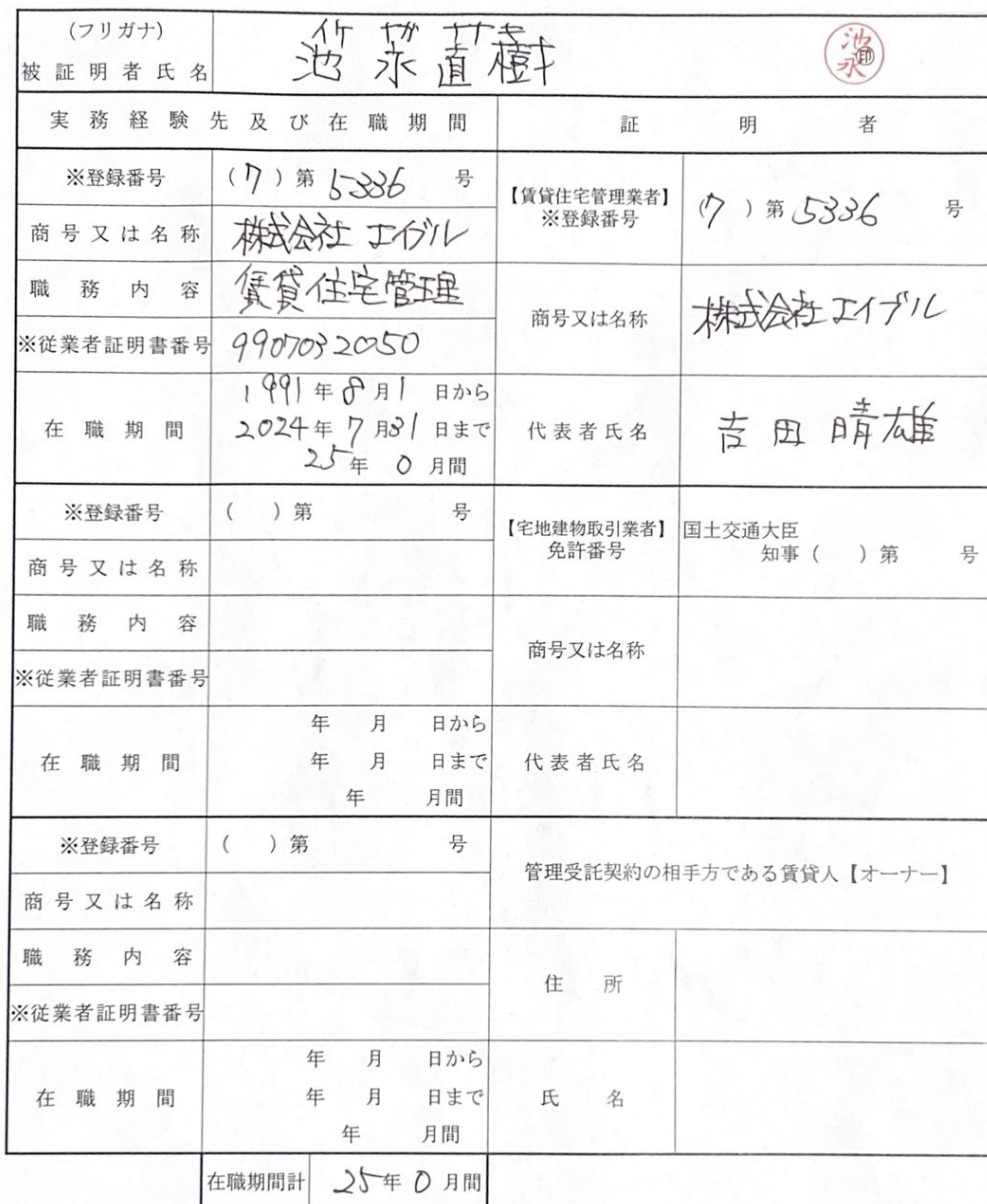 (フリガナ) イケ ナガ ナオキ
被証明者氏名 池永直樹 池永 印
実務経験先及び在職期間 証明者
※登録番号 (7)第5336号
【賃貸住宅管理業者】
※登録番号 (7)第5336号
商号又は名称 株式会社エイブル
職務内容 賃貸住宅管理
商号又は名称 株式会社エイブル
※従業者証明書番号 9907032050
在職期間 1991年8月1日から
2024年7月31日まで
25年0月間
代表者氏名 吉田晴雄
※登録番号 ( )第 号
【宅地建物取引業者】
免許番号
国土交通大臣
知事( )第 号
商号又は名称
職務内容
商号又は名称
※従業者証明書番号
在職期間 年 月 日から
年 月 日まで
年 月間
代表者氏名
※登録番号 ( )第 号
管理受託契約の相手方である賃貸人【オーナー】
商号又は名称
職務内容
住所
※従業者証明書番号
在職期間 年 月 日から
年 月 日まで
年 月間
氏名
在職期間計 25年0月間